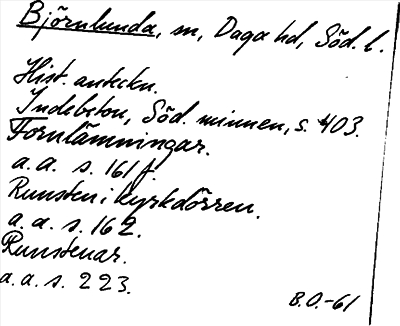 Björnlunda, sn, Daga hd, Söd. l.
Hist. anteckn.
Indebetou, Söd. minnen, s. 403.
Fornlämningar.
a. a. s. 161 f.
Runsten i kyrkdörren.
a. a. s. 162.
Runstenar.
a. a. s. 223.
B.O.-61